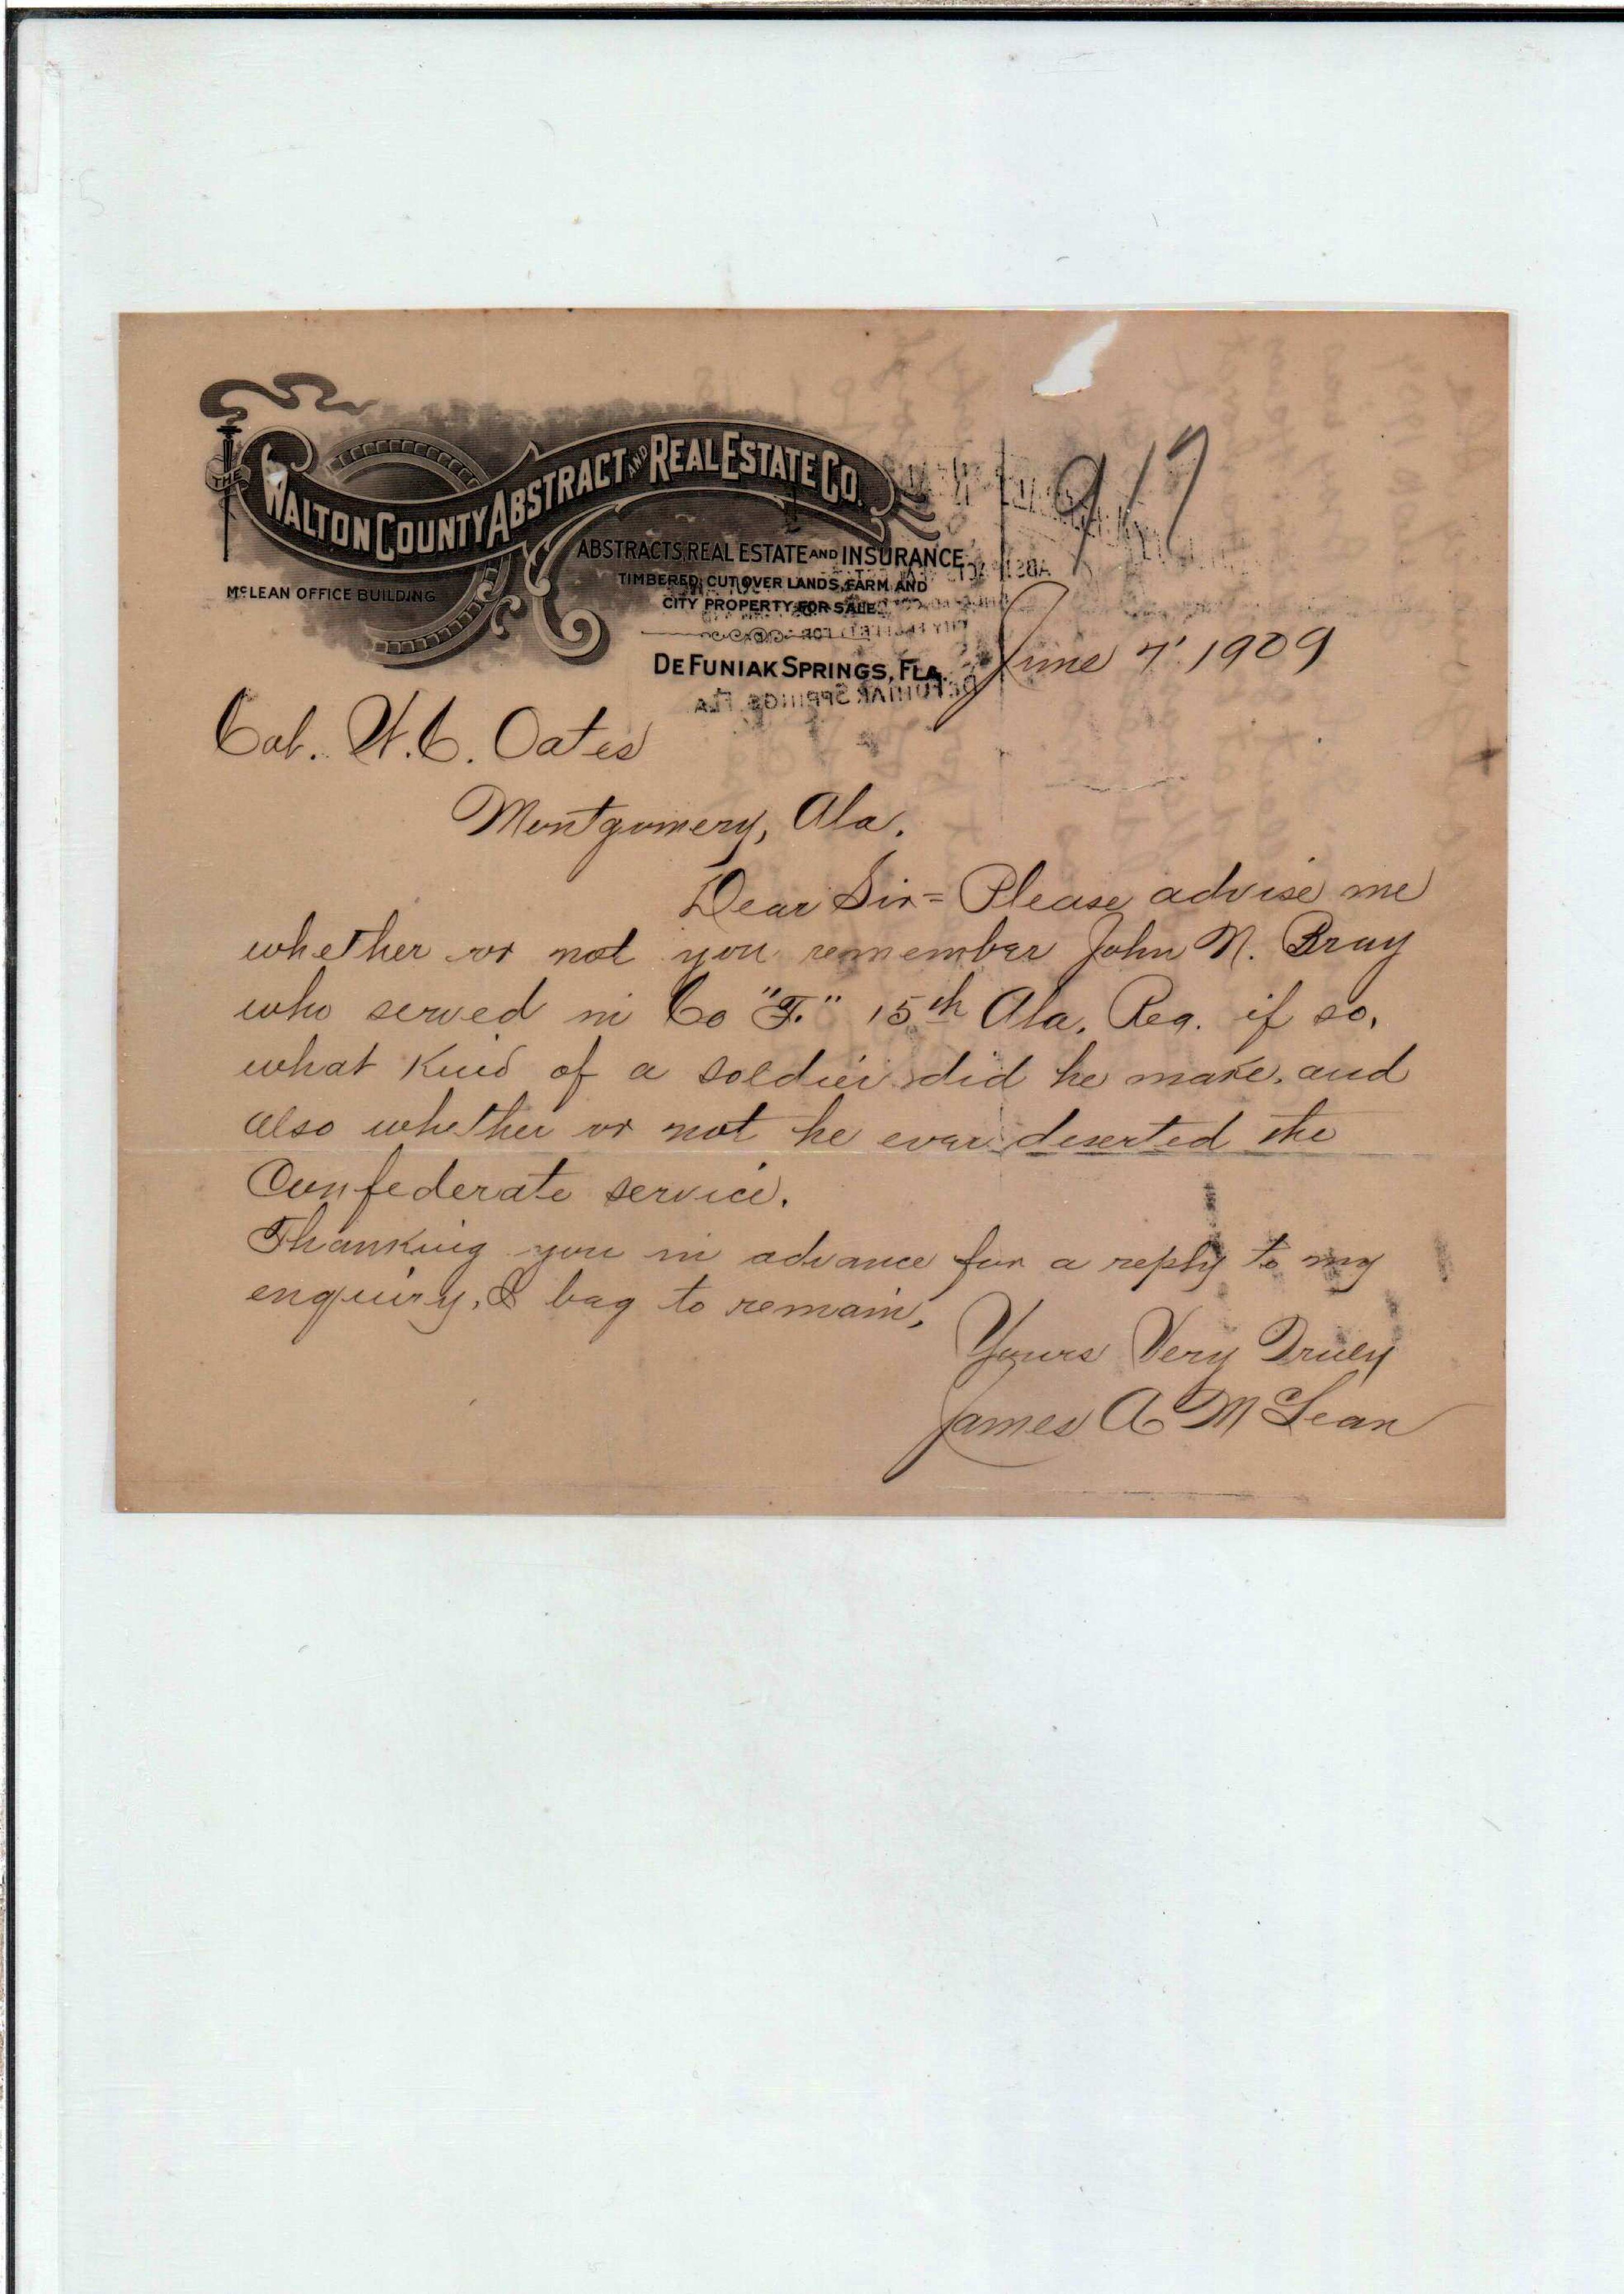 THE
WALTON COUNTY ABSTRACT AND REAL ESTATE CO.
ABSTRACTS, REAL ESTATE AND INSURANCE
TIMBERED, CUT OVER LANDS, FARM AND
CITY PROPERTY FOR SALE
McLEAN OFFICE BUILDING
917
DEFUNIAK SPRINGS, FLA. June 7' 1909
Col. W.C. Oates
Montgomery, Ala.
Dear Sir = Please advise me
whether or not you remember John N. Bray
who served in Co "F." 15th Ala. Reg. if so,
what kind of a soldier did he make, and
also whether or not he ever deserted the
Confederate service.
Thanking you in advance for a reply to my
enquiry, I beg to remain,
Yours Very Truly
James A McLean